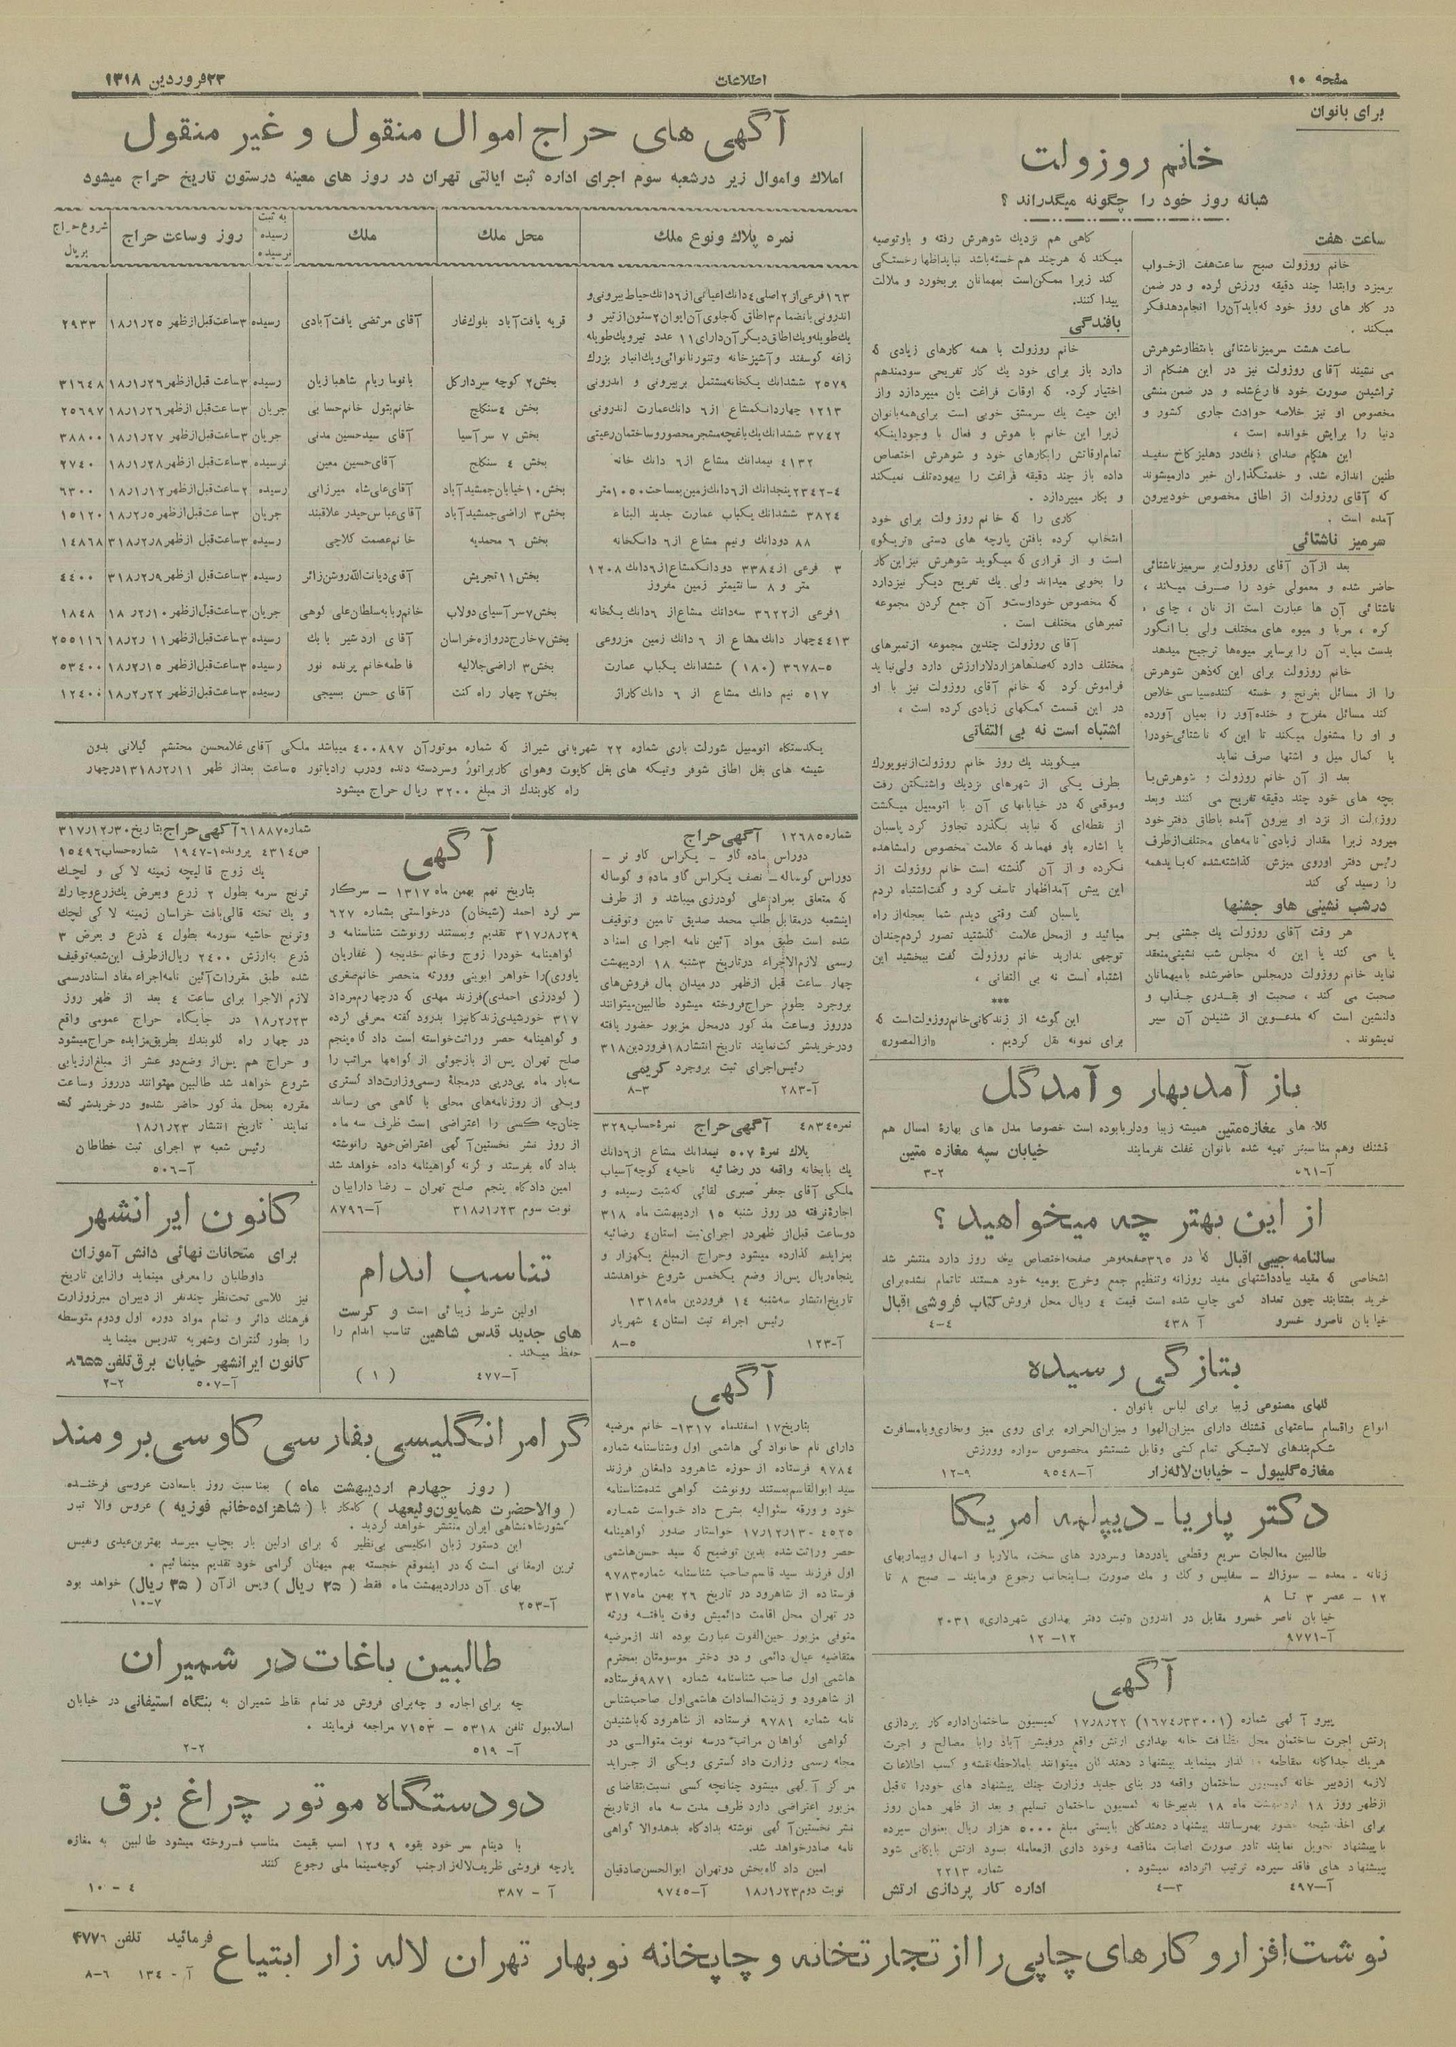 صفحه ۱۰
اطلاعات
۲۳ فروردین ۱۳۱۸
برای بانوان
خانم روزولت
شبانه روز خود را چگونه میگذراند ؟
ساعت هفت
خانم روزولت صبح ساعت هفت از خواب
برمیزد وابتدا چند دقیقه ورزش کرده و در ضمن
در کار های روز خود که باید آن را انجام دهد فکر
میکند .
ساعت هشت سرمیز ناشتائی بانتظار شوهرش
می نشیند آقای روزولت نیز در این هنگام از
تراشیدن صورت خود فارغ شده و در ضمن منشی
مخصوص او نیز خلاصه حوادث جاری کشور و
دنیا را برایش خوانده است ،
این هنگام صدای زنگ در دهلیز کاخ سفید
طنین اندازه شد، و خدمتگذاران خبر دار میشوند
که آقای روزولت از اطاق مخصوص خود بیرون
آمده است .
سرمیز ناشتائی
بعد از آن آقای روزولت بر سرمیز ناشتائی
حاضر شده و معمولی خود را صرف میکند ،
ناشتائی آن ها عبارت است از نان ، چای ،
کره ، مربا و میوه های مختلف ولی با انگور
بدست میاید آن را بر سایر میوه‌ها ترجیح میدهد
خانم روزولت برای این که ذهن شوهرش
را از مسائل بغرنج و خسته کننده سیاسی خلاص
کند مسائل مفرح و خنده آور را بمیان آورده
و او را مشغول میکند تا این که ناشتائی خود را
با کمال میل و اشتها صرف نماید
بعد از آن خانم روزولت و شوهرش با
بچه های خود چند دقیقه تفریح می کنند و بعد
روزولت از نزد او بیرون آمده باطاق دفتر خود
میرود زیرا مقدار زیادی نامه‌های مختلف از طرف
رئیس دفتر او روی میزش گذاشته شده که باید همه
را رسیدگی کند
درشب نشینی هاو جشنها
هر وقت آقای روزولت یک جشنی بر
پا می کند یا این که مجلس شب نشینی منعقد
نماید خانم روزولت در مجلس حاضر شده با میهمانان
صحبت می کند ، صحبت او بقدری جذاب و
دلنشین است که مدعوین از شنیدن آن سیر
نمیشوند .
گاهی هم نزدیک شوهرش رفته و باو توصیه
میکند که هر چند هم خسته باشد نباید اظهار خستگی
کند زیرا ممکن است بمهمانان بر بخورد و ملالت
پیدا کنند.
بافندگی
خانم روزولت با همه کارهای زیادی که
دارد باز برای خود یک کار تفریحی سودمند هم
اختیار کرد. که اوقات فراغت بان میپردازد و از
این حیث یک سرمشق خوبی است برای همه بانوان
زیرا این خانم با هوش و فعال با وجود اینکه
تمام اوقاتش را بکارهای خود و شوهرش اختصاص
داده باز چند دقیقه فراغت را بیهوده تلف نمیکند
و بکار میپردازد .
کاری را که خانم روزولت برای خود
انتخاب کرده بافتن پارچه های دستی «تریکو»
است و از قراری که میگوید شوهرش نیز این کار
را بخوبی میداند ولی یک تفریح دیگر نیز دارد
که مخصوص خود اوست و آن جمع کردن مجموعه
تمبرهای مختلف است .
آقای روزولت چندین مجموعه از تمبرهای
مختلف دارد که صدها هزار دلار ارزش دارد ولی نباید
فراموش کرد که خانم آقای روزولت نیز با او
در این قسمت کمکهای زیادی کرده است ،
اشتباه است نه بی التفاتی
میگویند یک روز خانم روزولت از نیویورک
بطرف یکی از شهرهای نزدیک واشنگتن رفت
وموقعی که در خیابانهای آن با اتومبیل میگشت
از نقطه‌ای که نباید بگذرد تجاوز کرد پاسبان
با اشاره باو فهماند که علامت مخصوص را مشاهده
نکرده و از آن گذشته است خانم روزولت از
این پیش آمد اظهار تاسف کرد و گفت اشتباه کردم
پاسبان گفت وقتی دیدم شما بعجله از راه
میائید و از محل علامت گذشتید تصور کردم چندان
توجهی ندارید خانم روزولت گفت ببخشید این
اشتباه است نه بی التفاتی .
***
این گوشه از زندگانی خانم روزولت است که
برای نمونه نقل کردیم . «از المصور»
باز آمد بهار و آمد گل
کلاه های مغازه متین همیشه زیبا ودلربا بوده است خصوصا مدل های بهاره امسال هم
قشنگ وهم مناسبتر تهیه شده بانوان غفلت نفرمایند خیابان سپه مغازه متین
۳-۲
از این بهتر چه میخواهید ؟
سالنامه جیبی اقبال که در ۳۶۵ صفحه وهر صفحه اختصاص بیک روز دارد منتشر شد
اشخاصی که مقید بیادداشتهای مفید روزانه وتنظیم جمع وخرج یومیه خود هستند تا تمام نشده برای
خرید بشتابند چون تعداد کمی چاپ شده است قیمت ۴ ریال محل فروش کتاب فروشی اقبال
خیابان ناصر خسرو آ ۴۳۸ ۴-۴
بتازگی رسیده
گلهای مصنوعی زیبا برای لباس بانوان .
انواع واقسام ساعتهای قشنگ دارای میزان الهوا و میزان الحراره برای روی میز وبخاری وبا مسافرت
شکم‌بندهای لاستیکی تمام کشی وقابل شستشو مخصوص سواره وورزش
مغازه گلیبول - خیابان لاله زار آ-۹۵۴۸ ۹-۱۲
دکتر پاریا - دیپلمه امریکا
طالبین معالجات سریع وقطعی پادردها وسردرد های سخت، مالاریا و اسهال وبیماریهای
زنانه - معده - سوزاک - سفلیس و کک و مک صورت باینجانب رجوع فرمایند - صبح ۸ تا
۱۲ - عصر ۳ تا ۸
خیابان ناصر خسرو مقابل در اندرون «ثبت دفتر بهداری شهرداری» ۲۰۳۱
آ-۹۷۷۱ ۱۲-۱۲
آگهی
پیرو آگهی شماره (۱۶۷۴/۳۳۰۰۱) ۱۷/۸/۲۲ کمیسیون ساختمان اداره کار پردازی
ارتش اجرت ساختمان محل نظافت خانه بهداری ارتش واقع در فیشر آباد را با مصالح و اجرت
هریک جداگانه مناقصه گذار مینماید پیشنهاد دهندگان میتوانند با ملاحظه نقشه و کسب اطلاعات
لازمه از دبیر خانه کمیسیون ساختمان واقعه در بنای جدید وزارت جنگ پیشنهاد های خود را تا قبل
از ظهر روز ۱۸ اردیبهشت ماه ۱۸ بدبیرخانه کمسیون ساختمان تسلیم و بعد از ظهر همان روز
برای اخذ نتیجه حضور بهمرسانند پیشنهاد دهندگان بایستی مبلغ ۵۰۰۰ هزار ریال بعنوان سپرده
با پیشنهاد تحویل نمایند تا در صورت اصابت مناقصه وخود داری از معامله بسود ارتش بایگانی شود
پیشنهاد های فاقد سپرده ترتیب اثر داده نمیشود . شماره ۲۲۱۳
آ-۴۹۷ ۳-۴ اداره کار پردازی ارتش
آگهی های حراج اموال منقول و غیر منقول
املاک واموال زیر درشعبه سوم اجرای اداره ثبت ایالتی تهران در روز های معینه درستون تاریخ حراج میشود
نمره پلاک ونوع ملک | محل ملک | ملک | به ثبت رسیده نرسیده | روز وساعت حراج | شروع حراج بریال
۱۶۳ فرعی از ۲ اصلی ۴ دانگ اعیانی از ۶ دانگ حیاط بیرونی و
اندرونی بانضمام ۳ اطاق که جلوی آن ایوان ۲ ستون از تیر و
یک طویله ویک اطاق دیگر آن دارای ۱۱ عدد تیر ویک طویله
زاغه گوسفند و آشپزخانه وتنور نانوائی ویک انبار بزرگ | قریه یافت آباد بلوک غار | آقای مرتضی یافت آبادی | رسیده | ۳ ساعت قبل از ظهر ۱۸/۱/۲۵ | ۲۹۳۳
۲۵۷۹ ششدانگ یکخانه مشتمل بر بیرونی و اندرونی | بخش ۲ کوچه سردار کل | بانو ماریام شاهباززیان | رسیده | ۳ ساعت قبل از ظهر ۱۸/۱/۲۶ | ۳۱۶۴۸
۱۲۱۳ چهار دانگ مشاع از ۶ دانگ عمارت اندرونی | بخش ۴ سنگلج | خانم بتول خانم حسابی | جریان | ۳ ساعت قبل از ظهر ۱۸/۱/۲۶ | ۲۵۶۹۷
۳۷۴۲ ششدانگ یک باغچه مشجر محصور وساختمان رعیتی | بخش ۷ سر آسیا | آقای سید حسین مدنی | جریان | ۳ ساعت قبل از ظهر ۱۸/۱/۲۷ | ۳۸۸۰۰
۴۱۳۲ نیمدانگ مشاع از ۶ دانگ خانه | بخش ۴ سنگلج | آقای حسین معین | نرسیده | ۳ ساعت قبل از ظهر ۱۸/۱/۲۸ | ۲۷۴۰
۲۳۴۲-۴ پنجدانگ از ۶ دانگ زمین بمساحت ۱۰۵۰ متر | بخش ۱۰ خیابان جمشید آباد | آقای علی شاه میرزائی | رسیده | ۲ ساعت قبل از ظهر ۱۸/۱/۱۲ | ۶۳۰۰
۳۸۲۴ ششدانگ یکباب عمارت جدید البناء | بخش ۳ اراضی جمشید آباد | آقای عباس حیدر علاقبند | جریان | ۳ ساعت قبل از ظهر ۱۸/۲/۵ | ۱۵۱۲۰
۸۸ دودانگ ونیم مشاع از ۶ دانگ خانه | بخش ۶ محمدیه | خانم عصمت کلاچی | رسیده | ۳ ساعت قبل از ظهر ۳۱۸/۲/۸ | ۱۴۸۶۸
۳ فرعی از ۳۳۸۴ دودانگ مشاع از ۶ دانگ ۱۲۰۸
متر و ۸ سانتیمتر زمین مفروز | بخش ۱۱ تجریش | آقای دیانت الله روشن زائر | رسیده | ۳ ساعت قبل از ظهر ۳۱۸/۲/۹ | ۴۴۰۰
۱ فرعی از ۳۶۲۲ سه دانگ مشاع از ۶ دانگ یکخانه | بخش ۷ سر آسیای دولاب | خانم ربابه سلطان علی کوهی | جریان | ۳ ساعت قبل از ظهر ۱۸/۲/۱۰ | ۱۸۴۸
۴۴۱۳ چهار دانگ مشاع از ۶ دانگ زمین مزروعی | بخش ۷ خارج دروازه خراسان | آقای اردشیر بابک | رسیده | ۳ ساعت قبل از ظهر ۱۸/۲/۱۱ | ۲۵۵۱۱۶
۳۶۷۸-۵ (۱۸۰) ششدانگ یکباب عمارت | بخش ۳ اراضی جلالیه | فاطمه خانم پرنده نور | رسیده | ۳ ساعت قبل از ظهر ۱۸/۲/۱۵ | ۵۳۴۰۰
۵۱۷ نیم دانگ مشاع از ۶ دانگ کاراژ | بخش ۲ چهار راه کنت | آقای حسن بسیجی | رسیده | ۳ ساعت قبل از ظهر ۱۸/۲/۲۲ | ۱۲۴۰۰
یکدستگاه اتومبیل شورلت باری شماره ۲۲ شهربانی شیراز که شماره موتور آن ۴۰۰۸۹۷ میباشد ملکی آقای غلامحسن محتشم گیلانی بدون
شیشه های بغل اطاق شوفر وتیکه های بغل کاپوت وهوای کاربراتور وسردسته دنده ودرب رادیاتور ۵ ساعت بعد از ظهر ۱۳۱۸/۲/۱۱ در چهار
راه گلوبندک از مبلغ ۳۲۰۰ ریال حراج میشود
شماره ۱۲۶۸۵ آگهی حراج
دوراس ماده گاو - یکراس گاو نر -
دوراس گوساله - نصف یکراس گاو ماده و گوساله
که متعلق بمراد علی گودرزی میباشد و از طرف
اینشعبه در مقابل طلب محمد صدیق تامین وتوقیف
شده است طبق مواد آئین نامه اجرای اسناد
رسمی لازم الاجراء در تاریخ ۳ شنبه ۱۸ اردیبهشت
چهار ساعت قبل از ظهر در میدان مال فروشهای
بروجرد بطور حراج فروخته میشود طالبین میتوانند
در روز وساعت مذکور در محل مزبور حضور یافته
ودر خرید شرکت نمایند تاریخ انتشار ۱۸ فروردین ۳۱۸
رئیس اجرای ثبت بروجرد کریمی
آ-۲۸۳ ۳-۸
نمره ۴۸۳۴ آگهی حراج نمره حساب ۳۲۹
پلاک نمره ۵۰۷ نیمدانگ مشاع از ۶ دانگ
یک بابخانه واقعه در رضائیه ناحیه ۴ کوچه آسیاب
ملکی آقای جعفر صبری لقائی که ثبت رسیده و
اجاره نرفته در روز شنبه ۱۵ اردیبهشت ماه ۳۱۸
دو ساعت قبل از ظهر در اجرای ثبت استان ۴ رضائیه
بمزایده گذارده میشود وحراج از مبلغ یکهزار و
پنجاه ریال پس از وضع یکخمس شروع خواهد شد
تاریخ انتشار سه شنبه ۱۴ فروردین ماه ۱۳۱۸
رئیس اجراء ثبت استان ۴ شهریار
آ-۱۲۳ ۵-۸
آگهی
بتاریخ ۱۷ اسفندماه ۱۳۱۷- خانم مرضیه
دارای نام خانوادگی هاشمی اول وشناسنامه شماره
۹۷۸۴ فرستاده از حوزه شاهرود دامغان فرزند
سید ابوالقاسم بمستند رونوشت گواهی شده شناسنامه
خود و ورقه سئوالیه بشرح داد خواست شماره
۴۵۲۵ - ۱۷/۱۲/۱۳ خواستار صدور گواهینامه
حصر وراثت شده بدین توضیح که سید حسن هاشمی
اول فرزند سید قاسم صاحب شناسنامه شماره ۹۷۸۳
فرستاده از شاهرود در تاریخ ۲۶ بهمن ماه ۳۱۷
در تهران محل اقامت دائمیش وفات یافته ورثه
متوفی مزبور حین الفوت عبارت بوده اند از مرضیه
متقاضیه عیال دائمی و دو دختر موسومتان بمحترم
هاشمی اول صاحب شناسنامه شماره ۹۸۷۱ فرستاده
از شاهرود و زینت السادات هاشمی اول صاحب شناس
نامه شماره ۹۷۸۱ فرستاده از شاهرود که باشنیدن
گواهی گواهان مراتب در سه نوبت متوالی در
مجله رسمی وزارت داد گستری ویکی از جراید
مرکز آگهی میشود چنانچه کسی نسبت بتقاضای
مزبور اعتراضی دارد ظرف مدت سه ماه از تاریخ
نشر نخستین آگهی نوشته بدادگاه بدهد والا گواهی
نامه صادر خواهد شد.
امین داد گاه بخش دو تهران ابوالحسن صادقیان
نوبت دوم ۱۸/۱/۲۳ آ-۹۷۴۵
آگهی
بتاریخ نهم بهمن ماه ۱۳۱۷ - سرکار
سرگرد احمد (شیخان) درخواستی بشماره ۶۲۷
۳۱۷/۸/۲۹ تقدیم وبمستند رونوشت شناسنامه و
گواهینامه خود را زوج وخانم خدیجه ( غفاریان
یاوری) را خواهر ابوینی وورثه منحصر خانم صغری
( گودرزی احمدی) فرزند مهدی که در چهارم مرداد
۳۱۷ خورشیدی زندگانی را بدرود گفته معرفی کرده
و گواهینامه حصر وراثت خواسته است دادگاه پنجم
صلح تهران پس از بازجوئی از گواهها مراتب را
سه بار ماه پی در پی در مجلهٔ رسمی وزارت داد گستری
ویکی از روزنامه‌های محلی با گاهی می رساند
چنانچه کسی را اعتراضی است ظرف سه ماه
از روز نشر نخستین آگهی اعتراض خود را نوشته
بدادگاه بفرستد و گرنه گواهینامه داده خواهد شد
امین دادگاه پنجم صلح تهران - رضا دارابیان
نوبت سوم ۳۱۸/۱/۲۳ آ-۸۷۹۶
تناسب اندام
اولین شرط زیبائی است و کرست
های جدید قدس شاهین تناسب اندام را
حفظ میکند .
آ-۴۷۷ (۱)
شماره ۶۱۸۸۷ آگهی حراج بتاریخ ۳۱۷/۱۲/۳۰
ص ۴۳۱۴ پرونده ۱-۱۹۴۷ شماره حساب ۱۵۴۹۶
یک زوج قالیچه زمینه لاکی و لچک
ترنج سرمه بطول ۲ زرع وبعرض یک زرع وچارک
و یک تخته قالی بافت خراسان زمینه لاکی لچک
وترنج حاشیه سورمه بطول ۴ ذرع و بعرض ۳
ذرع به ارزش ۲۴۰۰ ریال از طرف این شعبه توقیف
شده طبق مقررات آئین نامه اجراء مفاد اسناد رسمی
لازم الاجرا برای ساعت ۴ بعد از ظهر روز
۱۸/۲/۲۳ در جایگاه حراج عمومی واقع
در چهار راه گلوبندک بطریق مزایده حراج میشود
و حراج هم پس از وضع دو عشر از مبلغ ارزیابی
شروع خواهد شد طالبین میتوانند در روز وساعت
مقرره بمحل مذکور حاضر شده و در خرید شرکت
نمایند تاریخ انتشار ۱۸/۱/۲۳
رئیس شعبه ۳ اجرای ثبت خطاطان
آ-۵۰۶
کانون ایرانشهر
برای متحانات نهائی دانش آموزان
داوطلبان را معرفی مینماید واز این تاریخ
نیز کلاسی تحت نظر چند نفر از دبیران مبرز وزارت
فرهنگ دائر و تمام مواد دوره اول ودوم متوسطه
را بطور کنترات وشهریه تدریس مینماید
کانون ایرانشهر خیابان برق تلفن ۸۶۵۵
آ-۵۰۷ ۲-۲
گرامر انگلیسی بفارسی کاوسی برومند
( روز چهارم اردیبهشت ماه ) بمناسبت روز باسعادت عروسی فرخنده
( والاحضرت همایون ولیعهد ) کامکار با ( شاهزاده خانم فوزیه ) عروس والا تبار
کشور شاهنشاهی ایران منتشر خواهد گردید .
این دستور زبان انگلیسی بی‌نظیر که برای اولین بار بچاپ میرسد بهترین عیدی ونفیس
ترین ارمغانی است که در اینموقع خجسته بهم میهنان گرامی خود تقدیم مینمائیم .
بهای آن دراردیبهشت ماه فقط ( ۲۵ ریال ) وپس از آن ( ۳۵ ریال) خواهد بود
آ-۲۵۳ ۷-۱۰
طالبین باغات در شمیران
چه برای اجاره و چه برای فروش در تمام نقاط شمیران به بنگاه استیفانی در خیابان
اسلامبول تلفن ۵۳۱۸ - ۷۱۵۳ مراجعه فرمایند .
آ- ۵۱۹ ۲-۲
دودستگاه موتور چراغ برق
با دینام سر خود بقوه ۹ و۱۲ اسب بقیمت مناسب فروخته میشود طالبین به مغازه
پارچه فروشی ظریف لاله زار جنب کوچه سینما ملی رجوع کنند
آ - ۳۸۷ ۴ - ۱۰
نوشت افزار و کارهای چاپی را از تجارتخانه و چاپخانه نوبهار تهران لاله زار ابتیاع فرمائید تلفن ۴۷۷۶
آ - ۱۳۴ ۶-۸